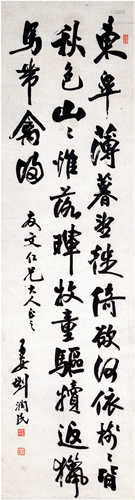 東皋薄暮望徙倚欲何依樹々皆
秋色山々惟落暉牧童驅犢返獵
馬帶禽歸
友文仁兄大人正之
劉潤民